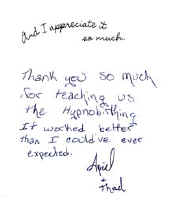 And I appreciate it
so much.
Thank you so much
for teaching us
the Hypnobirthing
It worked better
than I could've ever
expected.
Ariel
+ Thad